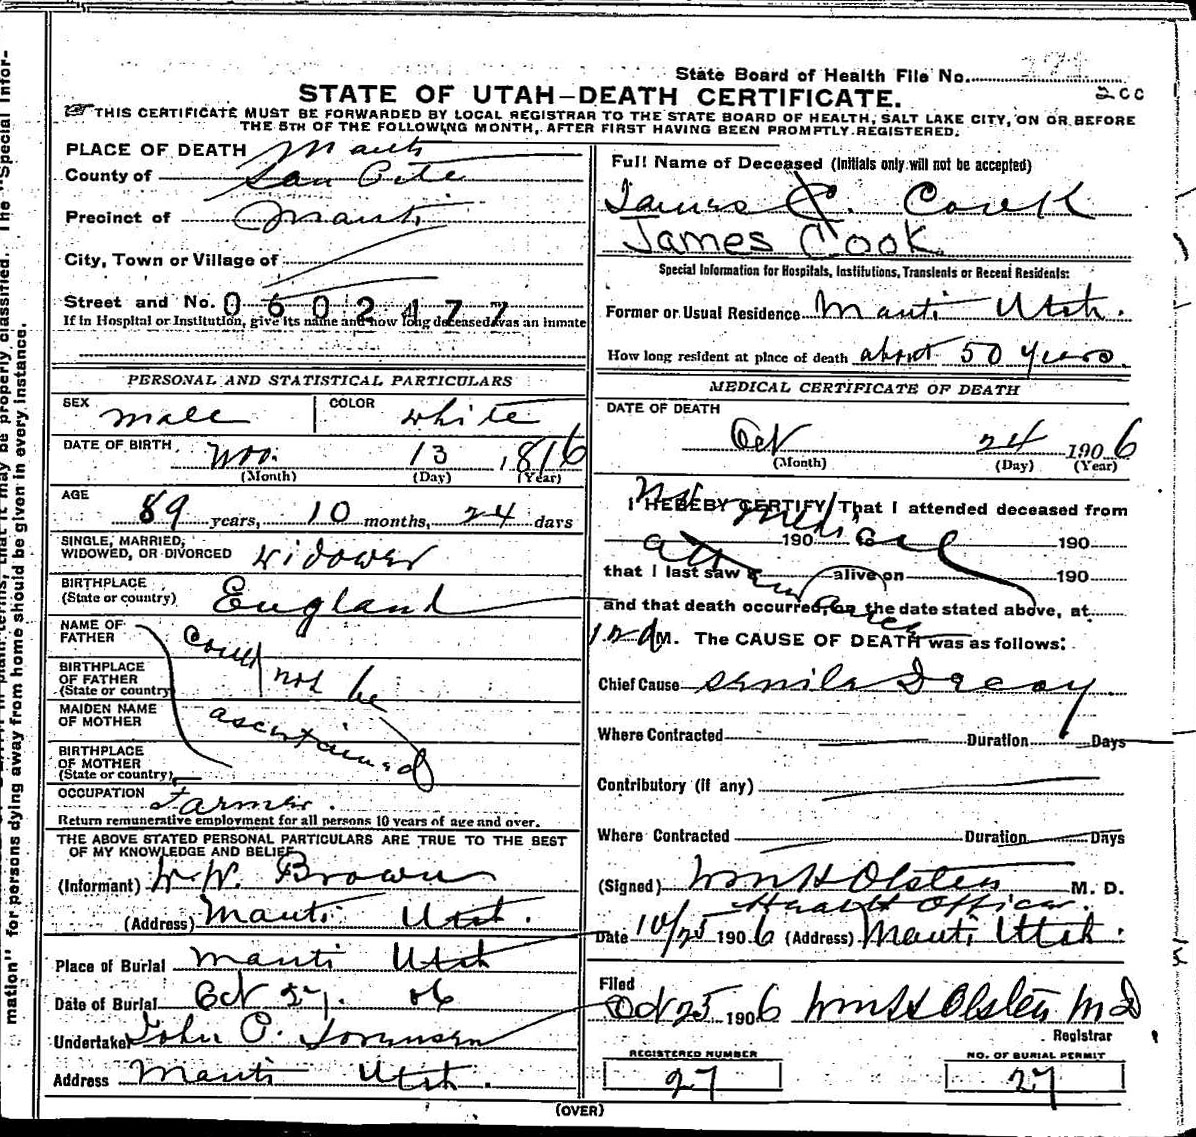 State Board of Health File No.
200
STATE OF UTAH—DEATH CERTIFICATE.
THIS CERTIFICATE MUST BE FORWARDED BY LOCAL REGISTRAR TO THE STATE BOARD OF HEALTH, SALT LAKE CITY, ON OR BEFORE
THE 5TH OF THE FOLLOWING MONTH, AFTER FIRST HAVING BEEN PROMPTLY REGISTERED.
PLACE OF DEATH Manti
County of San Pete
Precinct of Manti
City, Town or Village of
Street and No. 0602477
If in Hospital or Institution, give its name and how long deceased was an inmate
PERSONAL AND STATISTICAL PARTICULARS
SEX male COLOR white
DATE OF BIRTH Nov. 13 1816
(Month) (Day) (Year)
AGE
89 years, 10 months, 24 days
SINGLE, MARRIED,
WIDOWED, OR DIVORCED widower
BIRTHPLACE
(State or country) England
NAME OF
FATHER could
BIRTHPLACE
OF FATHER not be
(State or country)
MAIDEN NAME
OF MOTHER ascertained
BIRTHPLACE
OF MOTHER
(State or country)
OCCUPATION Farmer.
Return remunerative employment for all persons 10 years of age and over.
THE ABOVE STATED PERSONAL PARTICULARS ARE TRUE TO THE BEST
OF MY KNOWLEDGE AND BELIEF
(Informant) W.W. Brown
(Address) Manti Utah.
Place of Burial Manti Utah
Date of Burial Oct 27. 06
Undertaker John P. Sorensen
Address Manti Utah.
Full Name of Deceased (Initials only will not be accepted)
James C. Cook
James Cook
Special Information for Hospitals, Institutions, Transients or Recent Residents:
Former or Usual Residence Manti Utah.
How long resident at place of death about 50 years.
MEDICAL CERTIFICATE OF DEATH
DATE OF DEATH
Oct 24 1906
(Month) (Day) (Year)
I HEREBY CERTIFY, That I attended deceased from
No medical
190 to 190
that I last saw h alive on 190
attendance
and that death occurred, on the date stated above, at
M. The CAUSE OF DEATH was as follows:
Chief Cause senile Decay
Where Contracted Duration Days
Contributory (if any)
Where Contracted Duration Days
(Signed) Wm H Olsten M. D.
Health Officer.
Date 10/25 1906 (Address) Manti Utah.
Filed
Oct 25 1906 Wm H Olsten MD
Registrar
REGISTERED NUMBER
27
NO. OF BURIAL PERMIT
27
(OVER)
mation" for persons dying away from home should be given in every instance.
plain terms, that it may be properly classified. The "Special Infor-